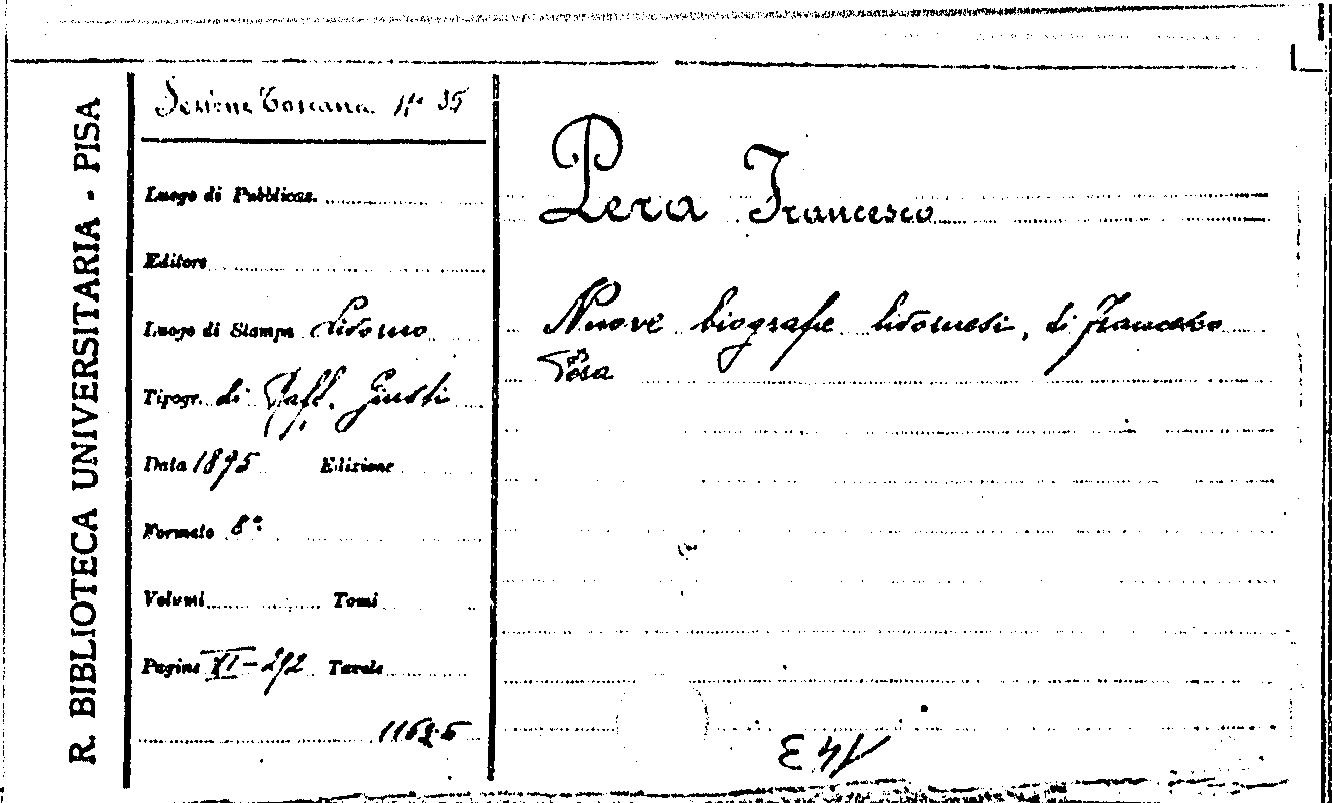 R. BIBLIOTECA UNIVERSITARIA - PISA
Sezione Toscana No 35
Luogo di Pubblicaz.
Editore
Luogo di Stampa Livorno
Tipogr. di Raff. Giusti
Data 1895 Edizione
Formato 8°
Volumi Tomi
Pagine XI-292 Tavole
Pera Francesco
Nuove biografie livornesi, di Francesco
Pera